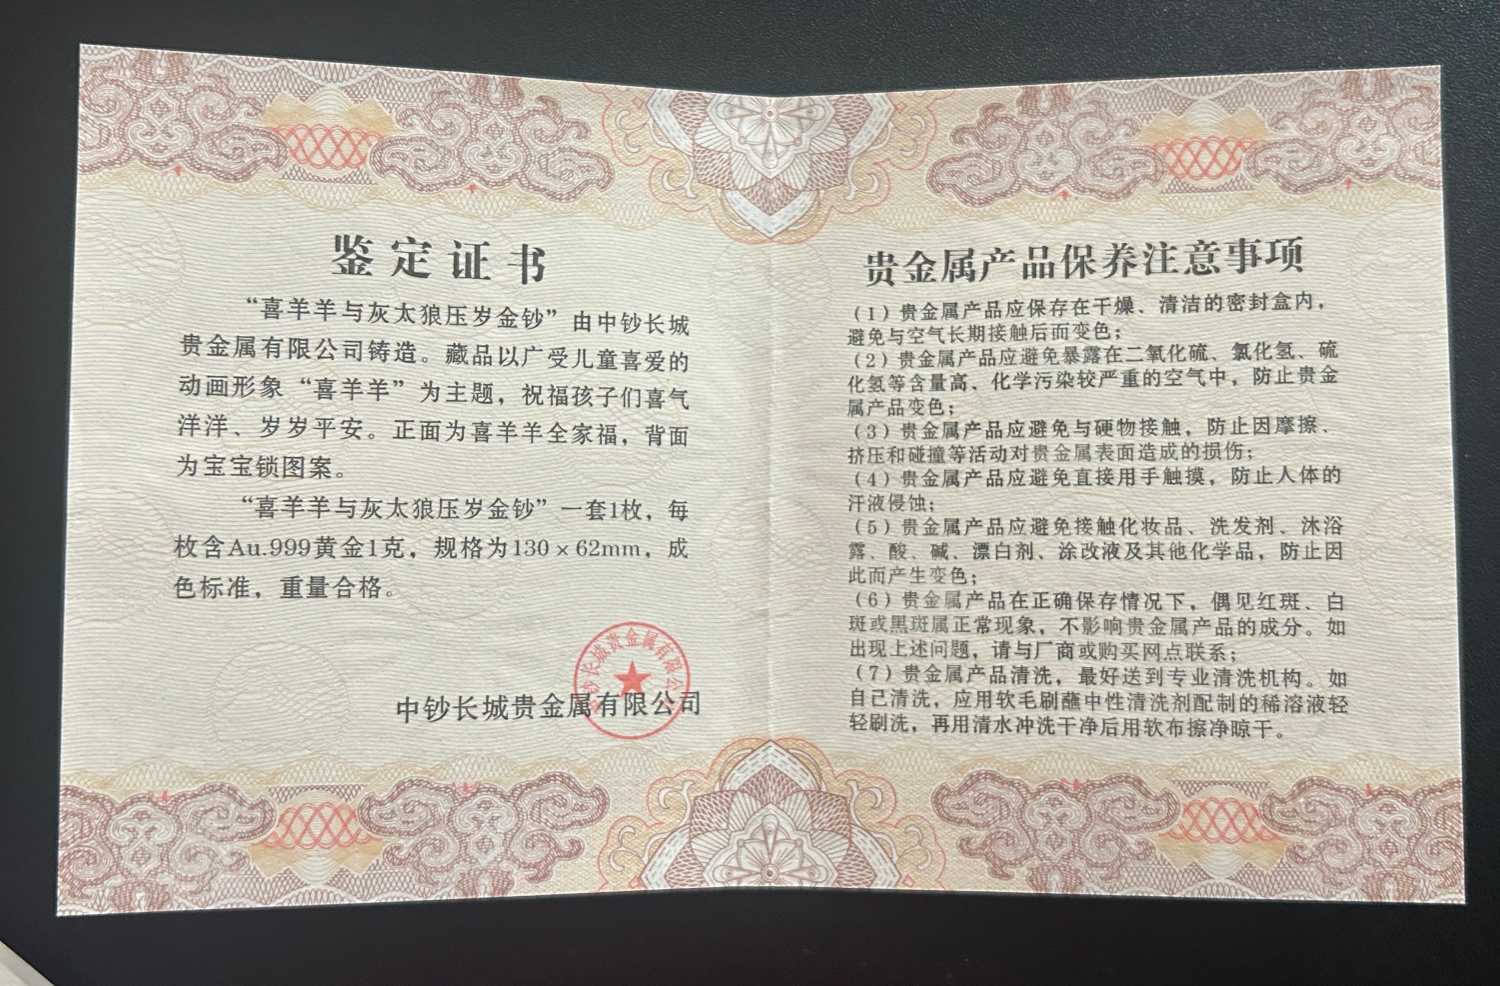 鉴定证书
“喜羊羊与灰太狼压岁金钞”由中钞长城
贵金属有限公司铸造。藏品以广受儿童喜爱的
动画形象“喜羊羊”为主题，祝福孩子们喜气
洋洋、岁岁平安。正面为喜羊羊全家福，背面
为宝宝锁图案。
“喜羊羊与灰太狼压岁金钞”一套1枚，每
枚含Au.999黄金1克，规格为130×62mm，成
色标准，重量合格。
中钞长城贵金属有限公司
中钞长城贵金属有限公司
贵金属产品保养注意事项
(1)贵金属产品应保存在干燥、清洁的密封盒内，
避免与空气长期接触后而变色；
(2)贵金属产品应避免暴露在二氧化硫、氯化氢、硫
化氢等含量高、化学污染较严重的空气中，防止贵金
属产品变色；
(3)贵金属产品应避免与硬物接触，防止因摩擦、
挤压和碰撞等活动对贵金属表面造成的损伤；
(4)贵金属产品应避免直接用手触摸，防止人体的
汗液侵蚀；
(5)贵金属产品应避免接触化妆品、洗发剂、沐浴
露、酸、碱、漂白剂、涂改液及其他化学品，防止因
此而产生变色；
(6)贵金属产品在正确保存情况下，偶见红斑、白
斑或黑斑属正常现象，不影响贵金属产品的成分。如
出现上述问题，请与厂商或购买网点联系；
(7)贵金属产品清洗，最好送到专业清洗机构。如
自己清洗，应用软毛刷蘸中性清洗剂配制的稀溶液轻
轻刷洗，再用清水冲洗干净后用软布擦净晾干。